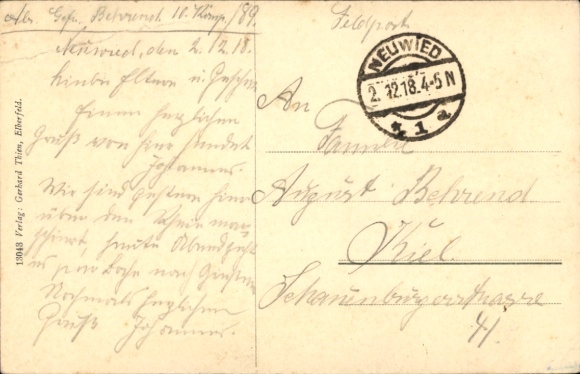 Abs. Gefr. Behrend 11. Komp. /89
Feldpost
Neuwied, den 2.12.18.
Liebe Eltern u. Geschw.
Einen herzlichen
Gruß von hier sendet
Johannes.
Wir sind gestern hier
über den Rhein mar
schiert, heute Abend geht
es per nach
Nochmals herzlichen
Gruß Johannes.
NEUWIED
2.12.18.4-5N
* 1 d
An
Familie
August Behrend
Kiel.
Schauenburgerstrasse
41
13048 Verlag: Gerhard Thien, Elberfeld.